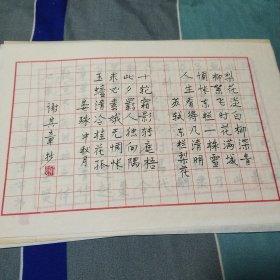 梨花淡白柳深青
柳絮飞时花满城
惆怅东栏一株雪
人生看得几清明
苏轼东栏梨花
十轮霜影转庭梧
此夕羁人独向隅
未必素娥无怅恨
玉蟾清冷桂花孤
晏殊中秋月
谢其章抄